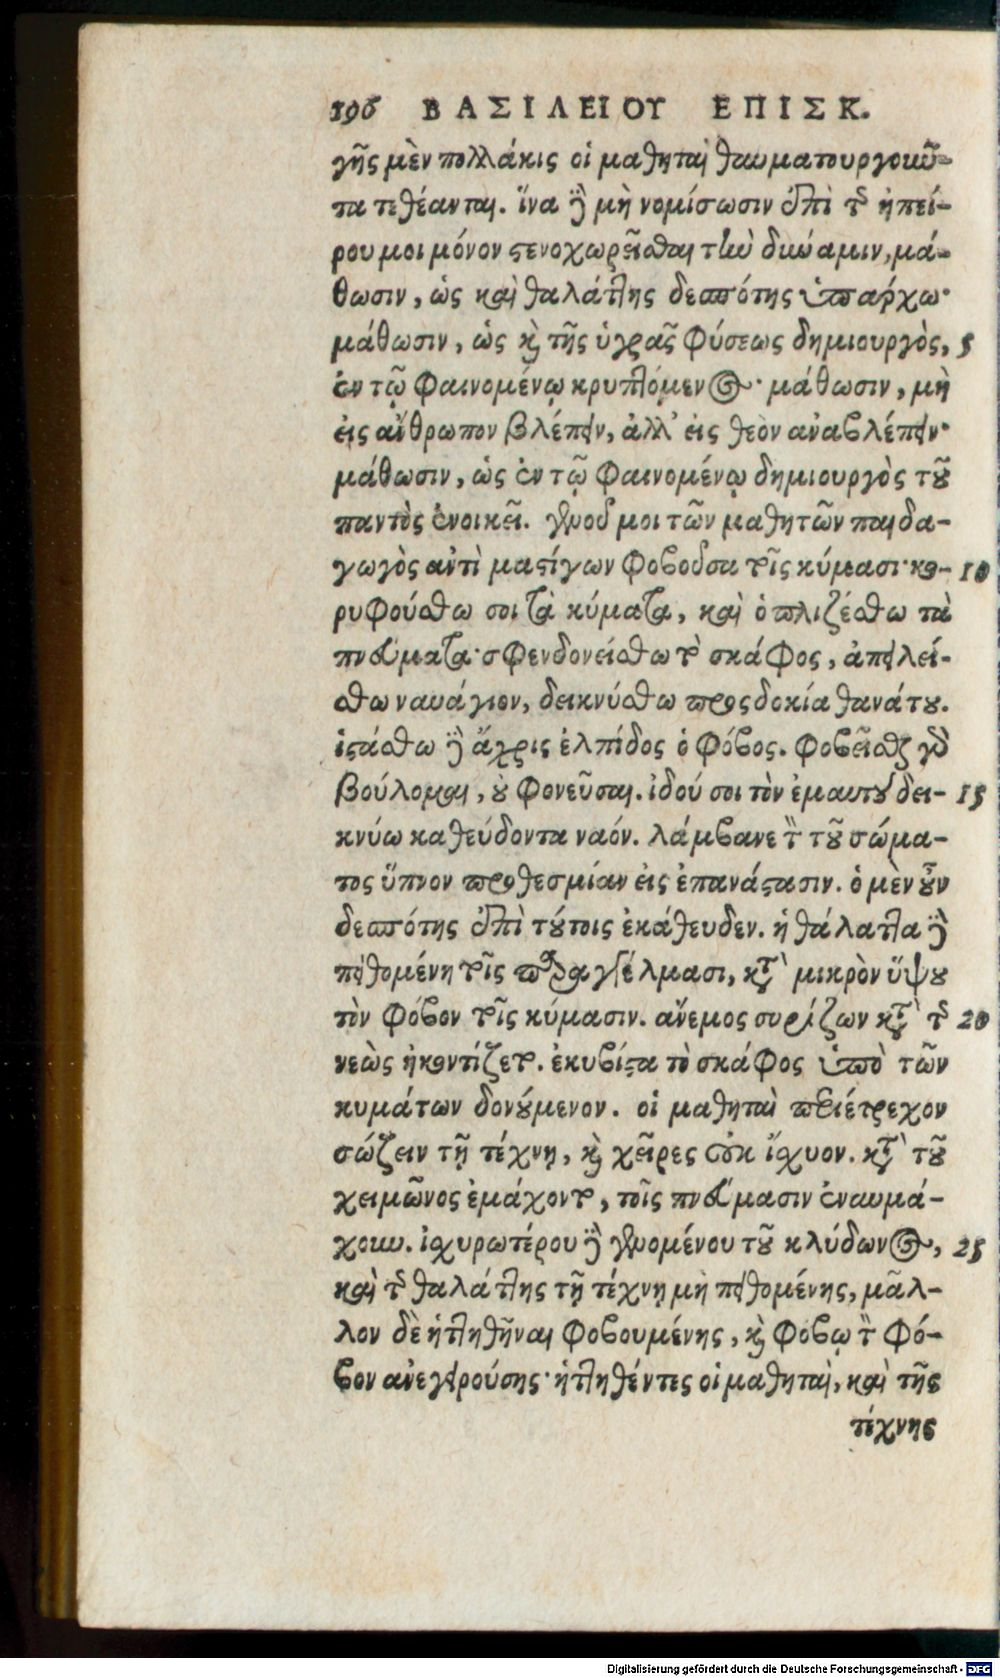 196 ΒΑΣΙΛΕΙΟΥ ΕΠΙΣΚ.
γῆς μὲν πολλάκις οἱ μαθηταὶ θαυματουργοῦν-
τα τεθέανται. ἵνα δὲ μὴ νομίσωσιν ἐπὶ τῆς ἠπεί-
ρου μοι μόνον στενοχωρεῖσθαι τὴν δύναμιν, μά-
θωσιν, ὡς καὶ θαλάττης δεσπότης ὑπάρχω·
μάθωσιν, ὡς καὶ τῆς ὑγρᾶς φύσεως δημιουργὸς, 5
ἐν τῷ φαινομένῳ κρυπτόμενος· μάθωσιν, μὴ
εἰς ἄνθρωπον βλέπειν, ἀλλ' εἰς θεὸν ἀναβλέπειν·
μάθωσιν, ὡς ἐν τῷ φαινομένῳ δημιουργὸς τοῦ
παντὸς ἐνοικεῖ. γενοῦ μοι τῶν μαθητῶν παιδα-
γωγὸς ἀντὶ μαστίγων φοβοῦσα τοῖς κύμασι· κο- 10
ρυφούσθω σοι τὰ κύματα, καὶ ὁπλιζέσθω τὰ
πνεύματα· σφενδονείσθω τὸ σκάφος, ἀπειλεί-
σθω ναυάγιον, δεικνύσθω προσδοκία θανάτου.
ἱστάσθω δὲ ἄχρις ἐλπίδος ὁ φόβος. φοβεῖσθαι γὰρ
βούλομαι, οὐ φονεῦσαι. ἰδού σοι τὸν ἐμαυτοῦ δει- 15
κνύω καθεύδοντα ναόν. λάμβανε τὸν τοῦ σώμα-
τος ὕπνον προθεσμίαν εἰς ἐπανάστασιν. ὁ μὲν οὖν
δεσπότης ἐπὶ τούτοις ἐκάθευδεν. ἡ θάλαττα δὲ
πειθομένη τοῖς παραγγέλμασι, κατὰ μικρὸν ὕψου
τὸν φόβον τοῖς κύμασιν. ἄνεμος συρίζων κατὰ τῆς 20
νεὼς ἠκοντίζετο. ἐκυβίστα τὸ σκάφος ὑπὸ τῶν
κυμάτων δονούμενον. οἱ μαθηταὶ περιέτρεχον
σώζειν τῇ τέχνῃ, καὶ χεῖρες οὐκ ἴσχυον. κατὰ τοῦ
χειμῶνος ἐμάχοντο, τοῖς πνεύμασιν ἐναυμά-
χουν. ἰσχυρωτέρου δὲ γενομένου τοῦ κλύδωνος, 25
καὶ τῆς θαλάττης τῇ τέχνῃ μὴ πειθομένης, μᾶλ-
λον δὲ ἡττηθῆναι φοβουμένης, καὶ φόβῳ τὸν φό-
βον ἀνεγειρούσης· ἡττηθέντες οἱ μαθηταὶ, καὶ τῆς
τέχνης
Digitalisierung gefördert durch die Deutsche Forschungsgemeinschaft - DFG